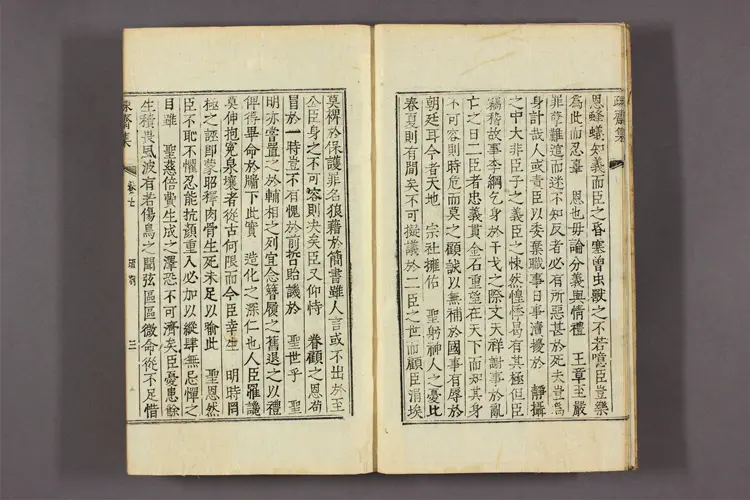 疎齋集
恩蜂蟻知義而臣之昏塞曾虫獸之不若噫臣豈樂
爲此而忍辜 恩也毋論分義與情禮 王章至嚴
罪孽難逭而迷不知反者必有所惡甚於死夫豈爲
身計哉人或責臣以委棄職事日事瀆擾於 靜攝
之中大非臣子之義臣之悚然惶悸曷有其極但臣
竊稽故事李綱乞身於干戈之際文天祥謝事於亂
亡之日二臣者忠義貫金石重望在天下而知其身
不可容則時危而莫之顧誠以無補於國事有辱於
朝廷耳今者天地 宗社擁佑 聖躬神人之憂比
春夏則有間矣不可擬議於二臣之世而顧臣涓埃
莫裨於保護罪名狼藉於簡書雖人言或不出於至
公臣身之不可容則決矣臣又仰恃 眷顧之恩苟
冒於一時豈不有愧於前哲貽譏於 聖世乎 聖
明亦嘗置之於輔相之列宜念簪履之舊退之以禮
俾得畢命於牖下此實 造化之深仁也人臣罹讒
莫伸抱冤泉壤者從古何限而今臣幸生 明時罔
極之誣即蒙昭釋肉骨生死未足以喩此 聖恩然
臣不恥不懼忍能抗顔重入必加以縱肆無忌憚之
目雖 聖慈倍費生成之澤恐不可濟矣臣憂患餘
生積畏風波有若傷鳥之聞弦區區微命從不足惜
疎齋集 卷七 三